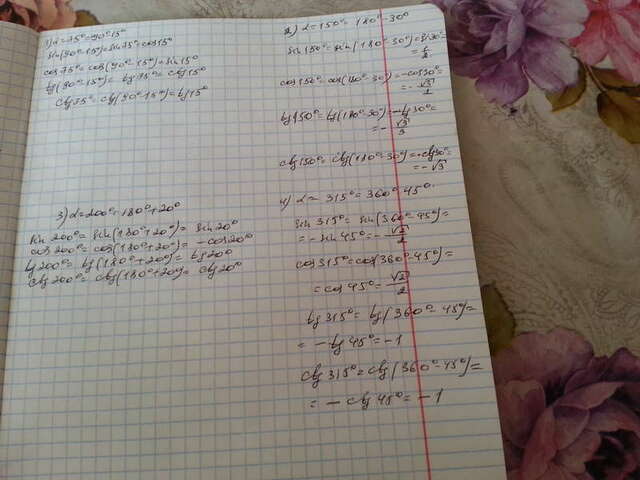 1) α=75°=90°-15°
sin(90°-15°)=sin75°=cos15°
cos75°=cos(90°-15°)=sin15°
tg(90°-15°)=tg75°=ctg15°
ctg75°=ctg(90°-15°)=tg15°
2) α=150°=180°-30°
sin150°=sin(180°-30°)=sin30°=
=1/2
cos150°=cos(180°-30°)=-cos30°=
=-√3/2
tg150°=tg(180°-30°)=-tg30°=
=-√3/3
ctg150°=ctg(180°-30°)=-ctg30°=
=-√3
3) α=200°=180°+20°
sin200°=sin(180°+20°)= sin20°
cos200°=cos(180°+20°)= -cos20°
tg200°=tg(180°+20°)= tg20°
ctg200°=ctg(180°+20°)= ctg20°
4) α= 315°=360°-45°
sin315°=sin(360°-45°)=
=-sin45°=-√2/2
cos315°=cos(360°-45°)=
=cos45°=√2/2
tg315°=tg(360°-45°)=
=-tg45°=-1
ctg315°=ctg(360°-45°)=
=-ctg45°=-1